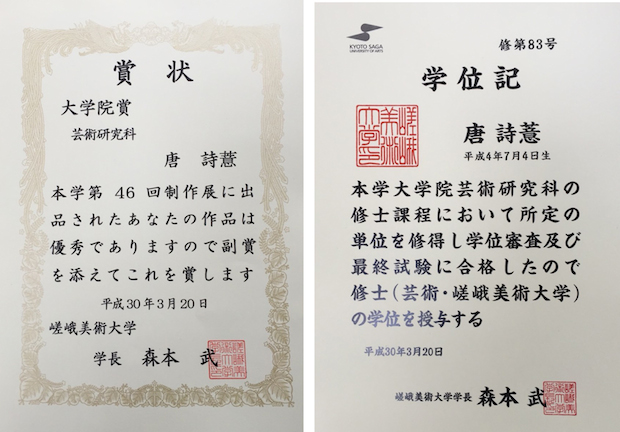 賞 状
大学院賞
芸術研究科
唐 詩薏
本学第 46 回制作展に出
品されたあなたの作品は
優秀でありますので副賞
を添えてこれを賞します
平成30年3月20日
嵯峨美術大学
学長 森本 武
KYOTO SAGA
UNIVERSITY OF ARTS
修第83号
学位記
唐 詩薏
平成4年7月4日生
本学大学院芸術研究科の
修士課程において所定の
単位を修得し学位審査及び
最終試験に合格したので
修士(芸術・嵯峨美術大学)
の学位を授与する
平成30年3月20日
嵯峨美術大学学長 森本 武